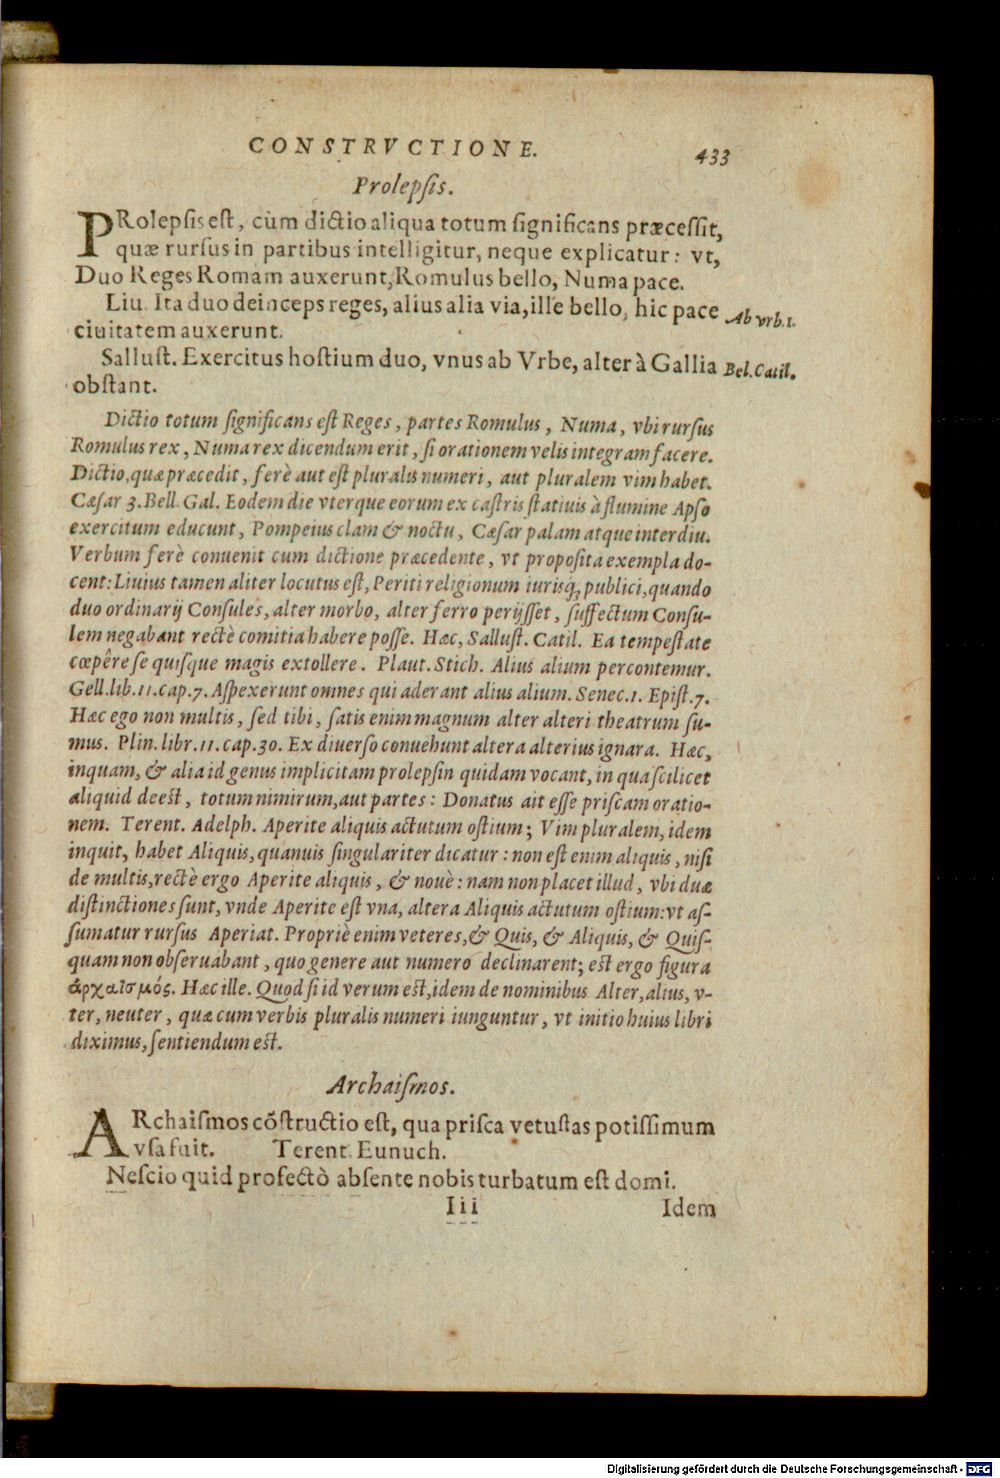 CONSTRVCTIONE. 433
Prolepsis.
PRolepsis est, cùm dictio aliqua totum significans præcessit,
quæ rursus in partibus intelligitur, neque explicatur: vt,
Duo Reges Romam auxerunt, Romulus bello, Numa pace.
Liu. Ita duo deinceps reges, alius alia via, ille bello, hic pace
Ab vrb.1.
ciuitatem auxerunt.
Sallust. Exercitus hostium duo, vnus ab Vrbe, alter à Gallia
Bel. Catil.
obstant.
Dictio totum significans est Reges, partes Romulus, Numa, vbi rursus
Romulus rex, Numa rex dicendum erit, si orationem velis integram facere.
Dictio, quæ præcedit, ferè aut est pluralis numeri, aut pluralem vim habet.
Cæsar 3. Bell. Gal. Eodem die vterque eorum ex castris statiuis à flumine Apso
exercitum educunt, Pompeius clam & noctu, Cæsar palam atque interdiu.
Verbum ferè conuenit cum dictione præcedente, vt proposita exempla do-
cent: Liuius tamen aliter locutus est, Periti religionum iurisq; publici, quando
duo ordinarij Consules, alter morbo, alter ferro perijsset, suffectum Consu-
lem negabant rectè comitia habere posse. Hæc, Sallust. Catil. Ea tempestate
cœpêre se quisque magis extollere. Plaut. Stich. Alius alium percontemur.
Gell. lib. 11. cap. 7. Aspexerunt omnes qui aderant alius alium. Senec. 1. Epist. 7.
Hæc ego non multis, sed tibi, satis enim magnum alter alteri theatrum su-
mus. Plin. libr. 11. cap. 30. Ex diuerso conuehunt altera alterius ignara. Hæc,
inquam, & alia id genus implicitam prolepsin quidam vocant, in qua scilicet
aliquid deest, totum nimirum, aut partes: Donatus ait esse priscam oratio-
nem. Terent. Adelph. Aperite aliquis actutum ostium; Vim pluralem, idem
inquit, habet Aliquis, quanuis singulariter dicatur: non est enim aliquis, nisi
de multis, rectè ergo Aperite aliquis, & nouè: nam non placet illud, vbi duæ
distinctiones sunt, vnde Aperite est vna, altera Aliquis actutum ostium: vt as-
sumatur rursus Aperiat. Propriè enim veteres, & Quis, & Aliquis, & Quis-
quam non obseruabant, quo genere aut numero declinarent; est ergo figura
ἀρχαϊσμός. Hæc ille. Quod si id verum est, idem de nominibus Alter, alius, v-
ter, neuter, quæ cum verbis pluralis numeri iunguntur, vt initio huius libri
diximus, sentiendum est.
Archaismos.
ARchaismos cōstructio est, qua prisca vetustas potissimum
vsa fuit. Terent. Eunuch.
Nescio quid profectò absente nobis turbatum est domi.
Iii Idem
Digitalisierung gefördert durch die Deutsche Forschungsgemeinschaft - DFG